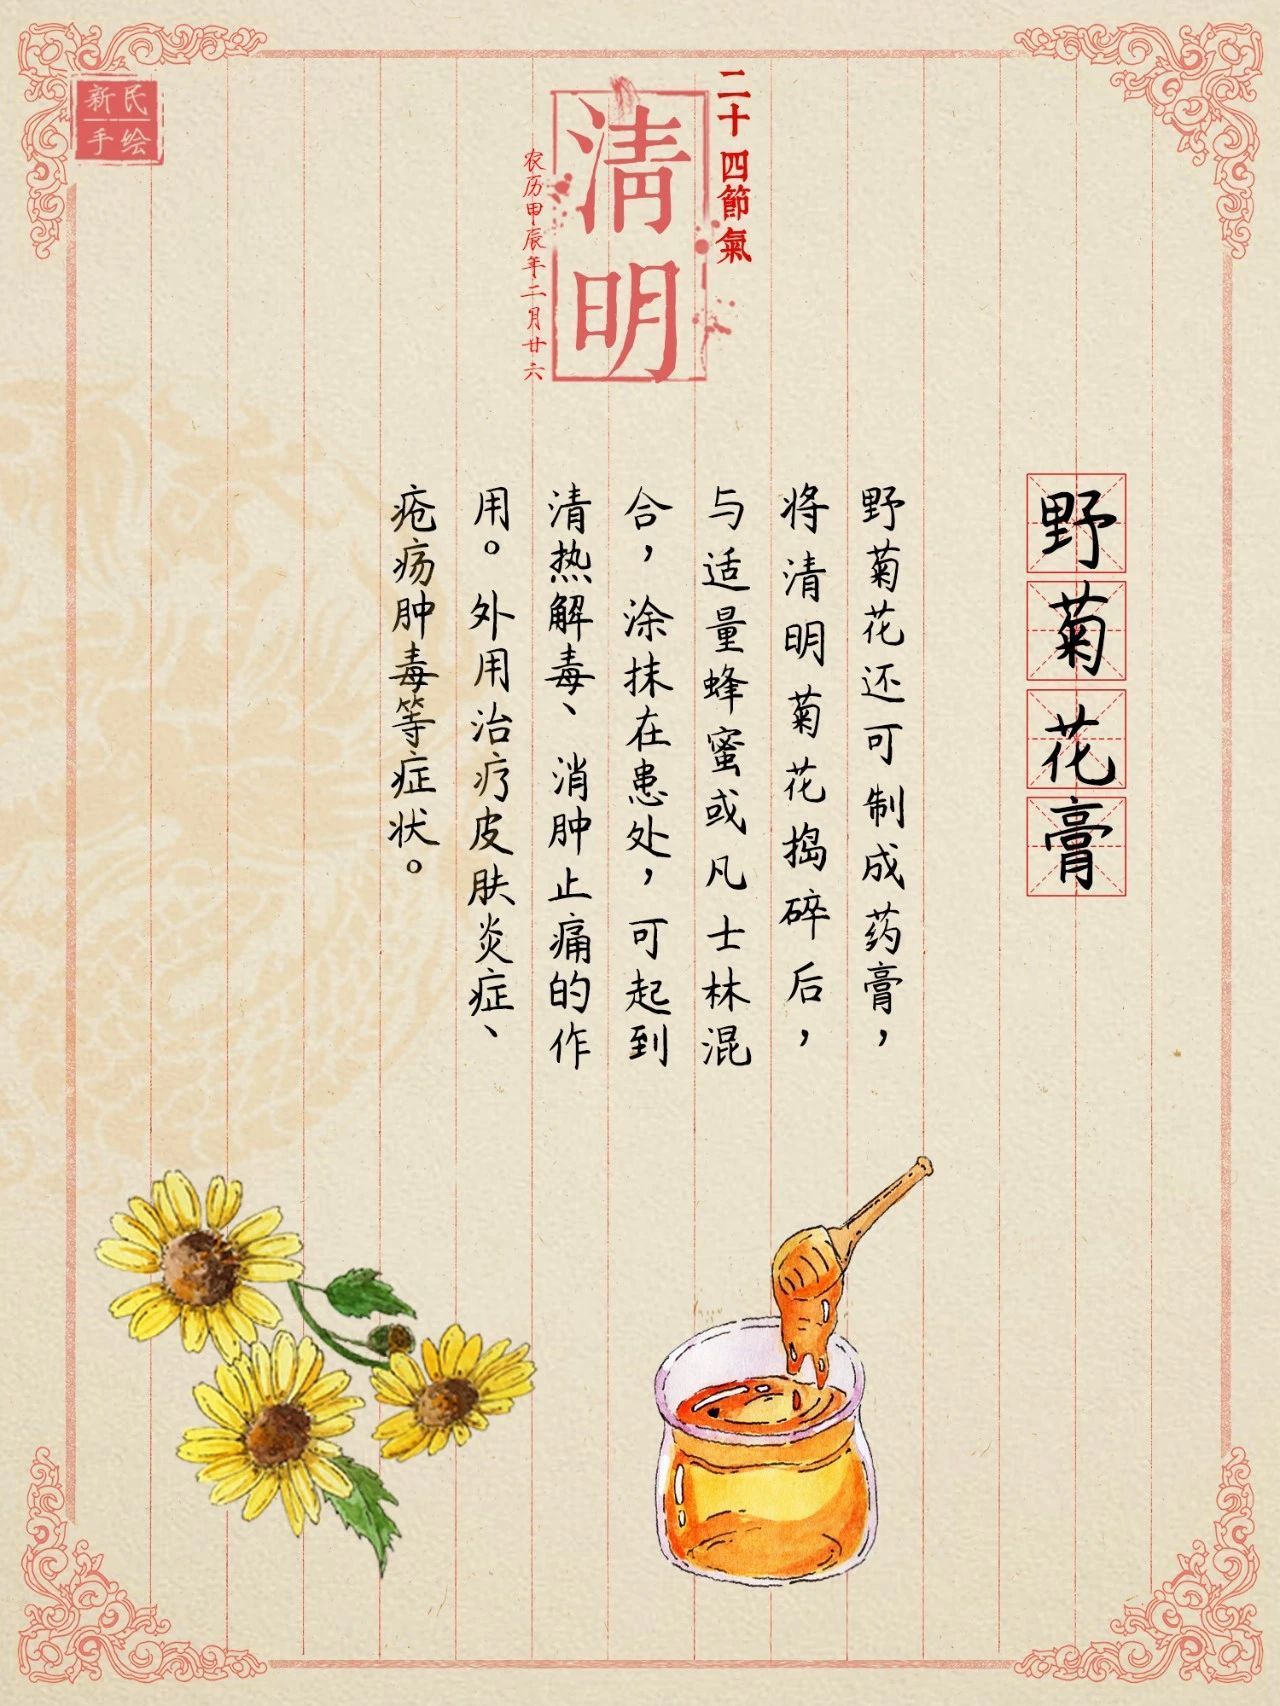 新民
手绘
二十四節氣
清明
农历甲辰年二月廿六
野菊花膏
野菊花还可制成药膏，
将清明菊花捣碎后，
与适量蜂蜜或凡士林混
合，涂抹在患处，可起到
清热解毒、消肿止痛的作
用。外用治疗皮肤炎症、
疮疡肿毒等症状。